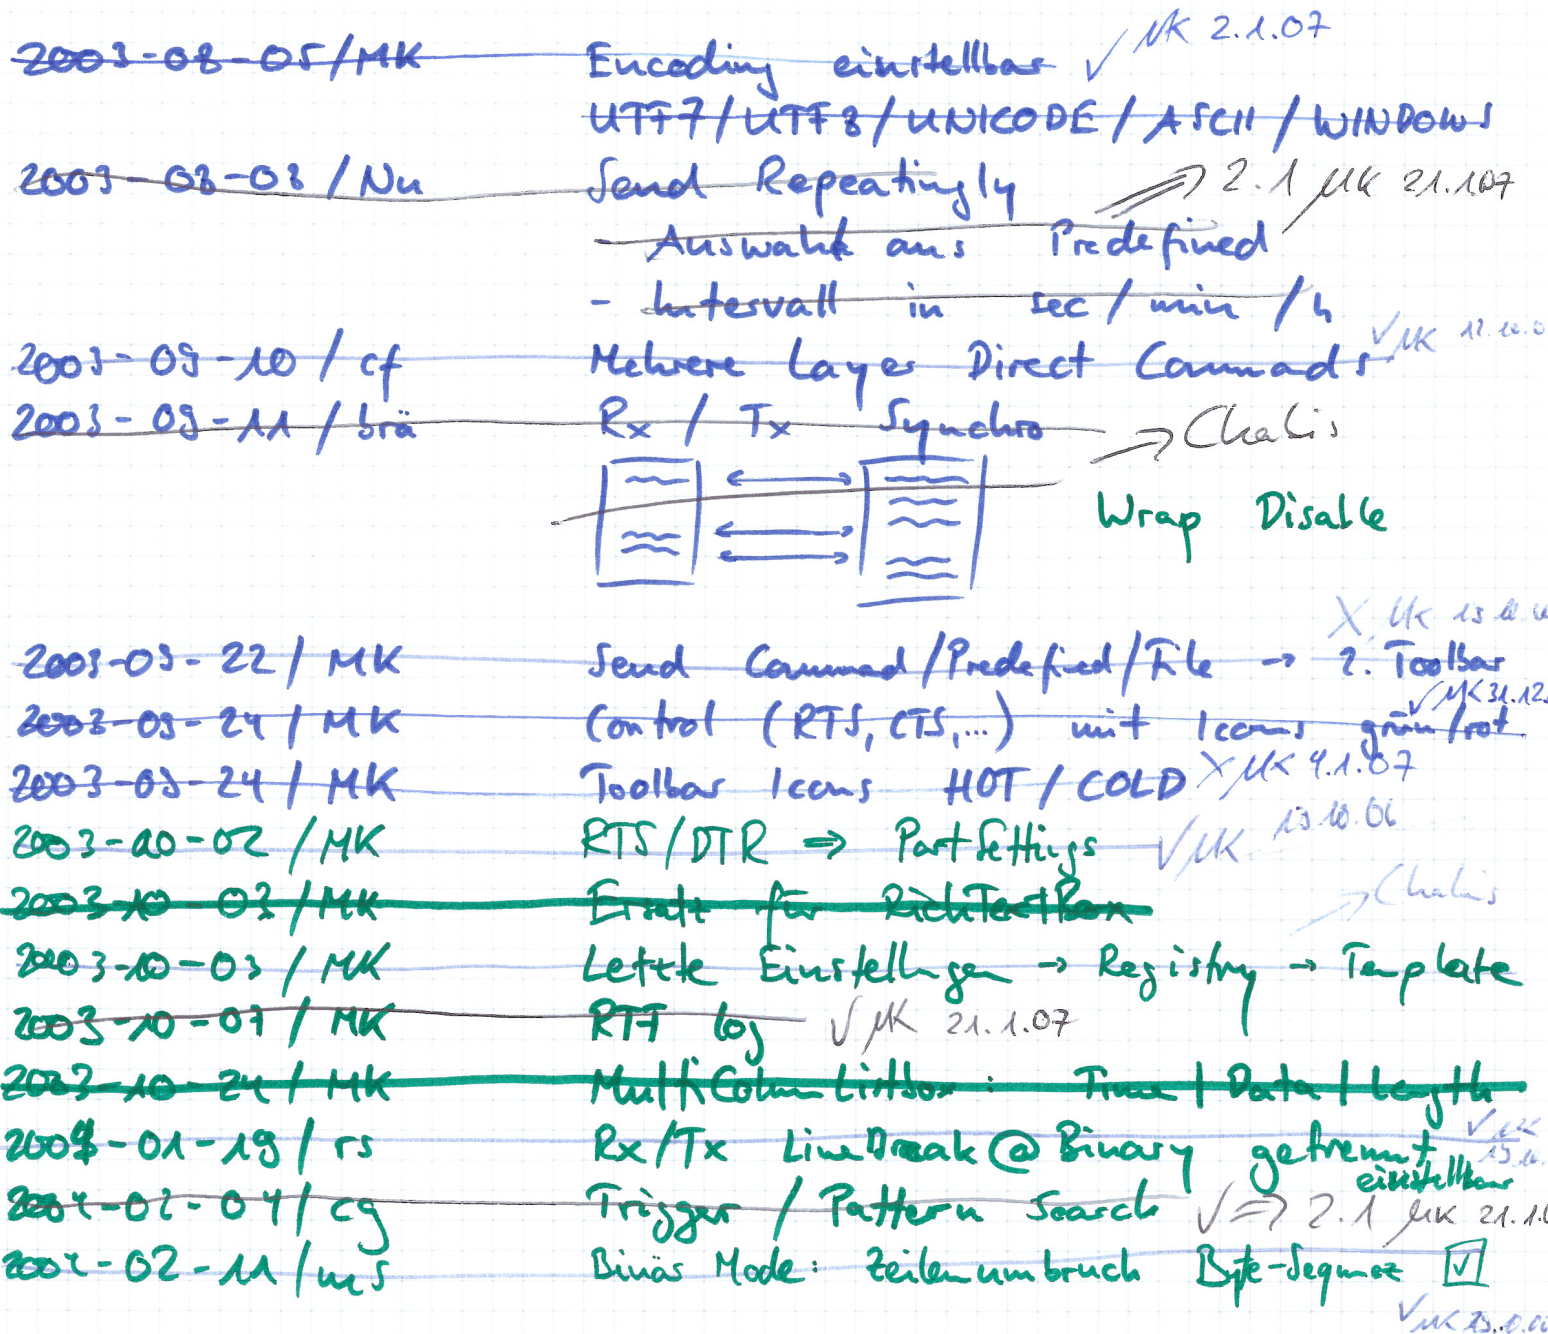 2003-08-05/MK Encoding einstellbar ✓ MK 2.1.07
UTF7/UTF8/UNICODE/ASCII/WINDOWS
2003-08-08/Nu Send Repeatingly ⇒ 2.1 MK 21.1.07
- Auswahl aus Predefined
- Intervall in sec/min/h
2003-09-10/cf Mehrere Layer Direct Commads ✓ MK
2003-09-11/brä Rx / Tx Synchro → Chalis
Wrap Disable
X MK
2003-09-22/MK Send Commad/Predefined/File → 2. Toolbar
✓ MK 31.12.
2003-09-24/MK Control (RTS, CTS,...) mit Icons grün/rot
2003-09-24/MK Toolbar Icons HOT/COLD X MK 4.1.07
2003-10-02/MK RTS/DTR ⇒ PortSettings ✓ MK 13.10.06
2003-10-03/MK Ersatz für RichTextBox
→ Chalis
2003-10-03/MK Letzte Einstellungen → Registry → Template
2003-10-07/MK RTF log ✓ MK 21.1.07
2003-10-24/MK MultiColumnListbox: Time | Data | Length
2004-01-19/rs Rx/Tx LineBreak @ Binary getrennt ✓ MK
einstellbar
2004-02-04/cg Trigger / Pattern Search ✓ ⇒ 2.1 MK 21.1.
2004-02-11/ms Binär Mode: Zeilenumbruch ☑
✓ MK